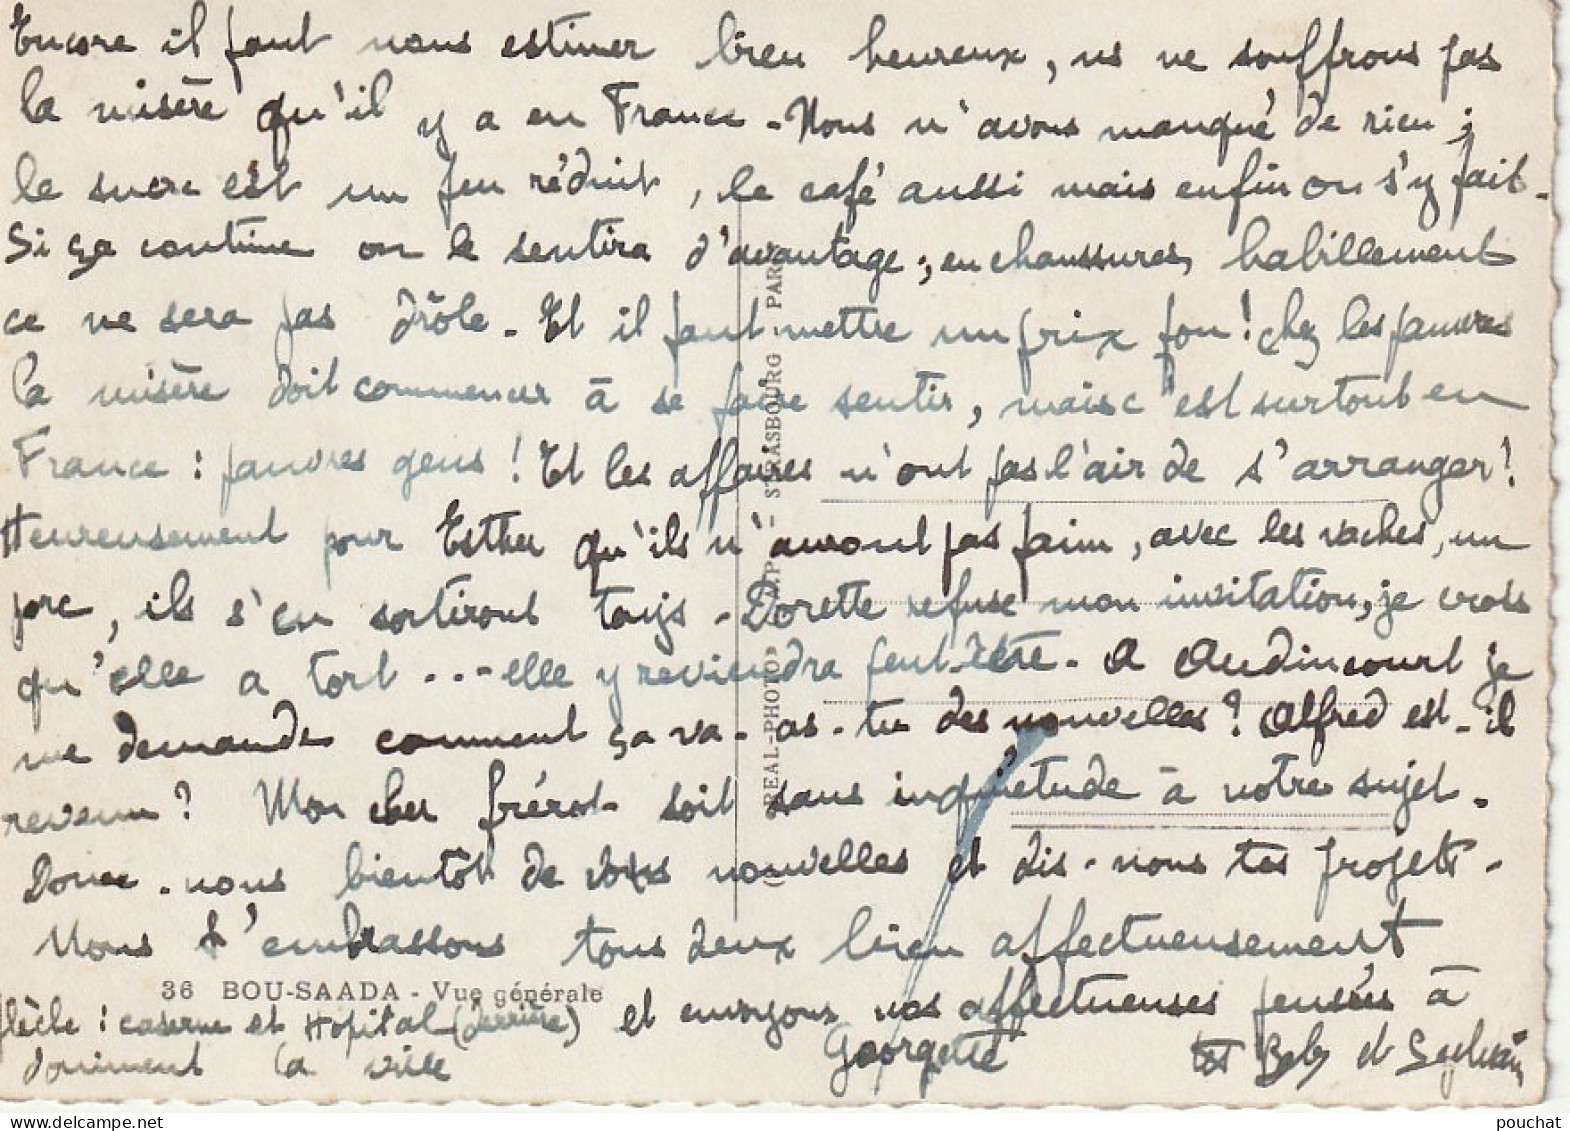 Encore il faut nous estimer bien heureux, ns ne souffrons pas
la misère qu'il y a en France - Nous n'avons manqué de rien ;
le sucre est un peu réduit, le café aussi mais enfin on s'y fait -
Si ça continue on le sentira d'avantage ; en chaussures, habillement
ce ne sera pas drôle - Et il faut mettre un prix fou ! chez les pauvres
la misère doit commencer à se faire sentir, mais c'est surtout en
France : pauvres gens ! Et les affaires n'ont pas l'air de s'arranger !
Heureusement pour Esther qu'ils n'auront pas faim, avec les vaches, un
porc, ils s'en sortiront toujs - Dorette refuse mon invitation, je crois
qu'elle a tort ... - elle y reviendra peut-être - A Audincourt je
me demande comment ça va - as-tu des nouvelles ? Alfred est-il
revenu ? Mon cher frérot soit sans inquiétude à notre sujet -
Donne-nous bientôt de tes nouvelles et dis-nous tes projets -
Nous t'embrassons tous deux bien affectueusement
et envoyons nos affectueuses pensées à
Georgette et Beby et Sylvain
36 BOU-SAADA - Vue générale
flèche : caserne et Hopital (derrière)
dominent la ville
REAL-PHOTO
STRASBOURG - PARIS
pouchat